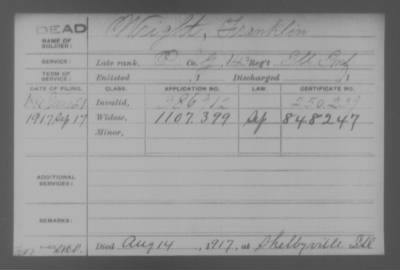 DEAD
NAME OF SOLDIER: Wright, Franklin
SERVICE: Late rank, Co. G, 143 Reg't Ill Inf
TERM OF SERVICE: Enlisted , 1 Discharged , 1
DATE OF FILING. CLASS. APPLICATION NO. LAW. CERTIFICATE NO.
Invalid, 986312 250.239
1917 Sep 17 Widow, 1107.399 848247
Minor,
ADDITIONAL SERVICES:
REMARKS:
Died Aug 14, 1917, at Shelbyville Ill